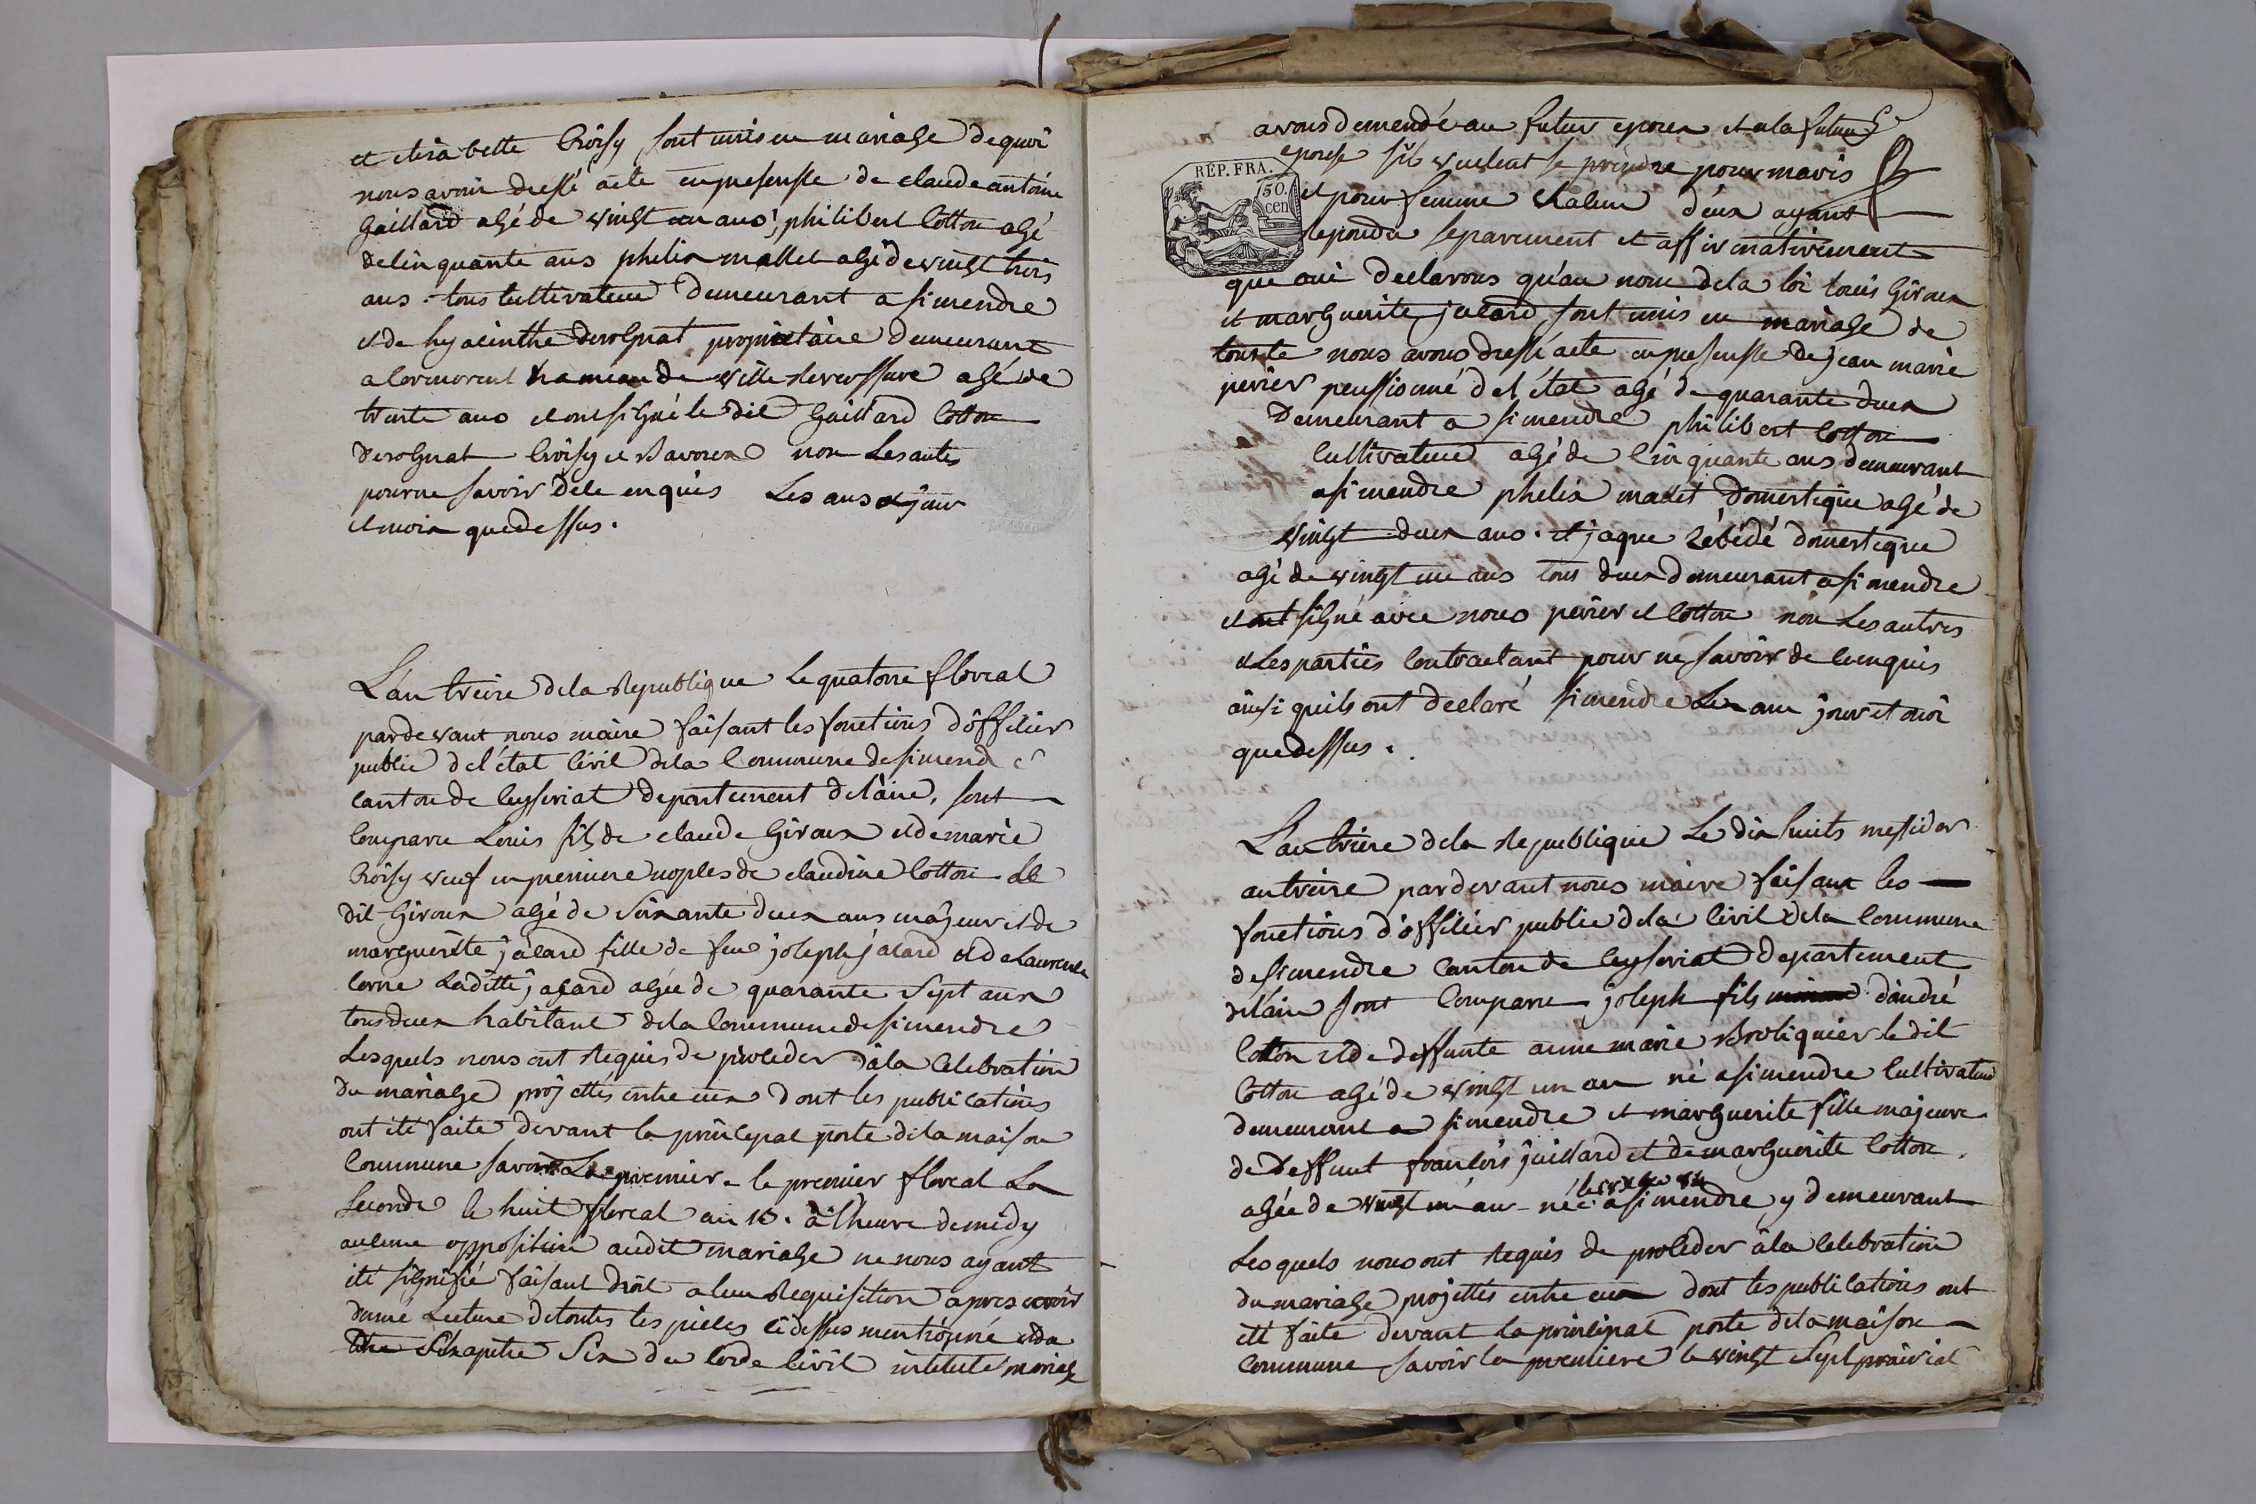 et elisabette Croisy sont unis en mariage de quoi
nous avoir dressé acte en presensse de claude antoine
Gaillard agé de vingt un ans, philibert Cotton agé
de cinquante ans phelix mallet agé de vingt trois
ans. tous Cultivateur Demeurant a simendre
et de hyacinthe derognat propriétaire Demeurant
a Cormorent hameau de ville reverssure agé de
trente ans et ont signé le dit Gaillard Cotton
derognat Croisy et non Les autre
pour ne savoir De ce enquis Les ans et jour
et moix que dessus.
L'an treize de la Republique Le quatorze floreal
par devant nous maire faisant les fonctions d'officier
public de l'état Civil de la Commune de simendre
canton de Ceyseriat departement de l'ain, sont
Comparu Louis fils de claude Giroux et de marie
Croisy veuf en premiere nopses de claudine Cotton Le
dit Giroux agé de soixante deux ans majeur et de
marguerite jacard fille de feu joseph jacard et de Laurence
Corne La ditte jacard agée de quarante sept ans
tous deux habitant de la Commune de simendre
Lesquels nous ont requis de proceder à la Celebration
du mariage projettés entre eux dont les publications
ont été faite devant la principal porte de la maison
Commune savoir La premier le premier floreal La
seconde le huit floreal an 13. a l'heure de midy
aucune opposition audit mariage ne nous ayant
été signifié faisant droit a leur Requisition apres avoir
donné Lecture de toutes les pieces ci dessus mentionné et du
Chapitre Six du Code Civil intitulé mariage
avons demendé au futur epoux et a la future
REP. FRA.
epouse s'il veuleut se prendre pour maris
50.
cen
et pour femme chacun d'eux ayant
repondu separement et affirmativement
que oui declarons qu'au nom de la loi Louis Giroux
et marguerite jacard sont unis en mariage de
tous te nous avons dressé acte en presensse de jean marie
perier penssionné de l'état agé de quarante deux
Demeurant a simendre philibert Cotton
Cultivateur agé de Cinquante ans demeurant
a simendre phelix mallet Domestique agé de
vingt deux ans. et jaque Domestique
agé de vingt un ans tous deux demeurant a simendre
et ont signé avec nous perier et Cotton non Les autres
et Les parties Contractant pour ne savoir de Ce enquis
ainsi qu'ils ont declaré simendre Les an jour et moi
que dessus.
L'an treize de la Republique Le dix huits messidor
an treize par devant nous maire faisant les
fonctions d'officier public de la Civil de la Commune
de simendre Canton de Ceyseriat Departement
de l'ain sont Comparu joseph fils d'andré
Cotton et de deffunte anne marie Broliquier le dit
Cotton agé de vingt un an né a simendre Cultivateur
demeurant a simendre et marguerite fille majeure
de Deffunt francois juillard et de marguerite Cotton.
agée de vingt un an née a simendre y demeurant
Lesquels nous ont requis de proceder à la Celebration
du mariage projettés entre eux dont les publications ont
été faite devant la principal porte de la maison
Commune savoir la premiere le vingt sept prairial